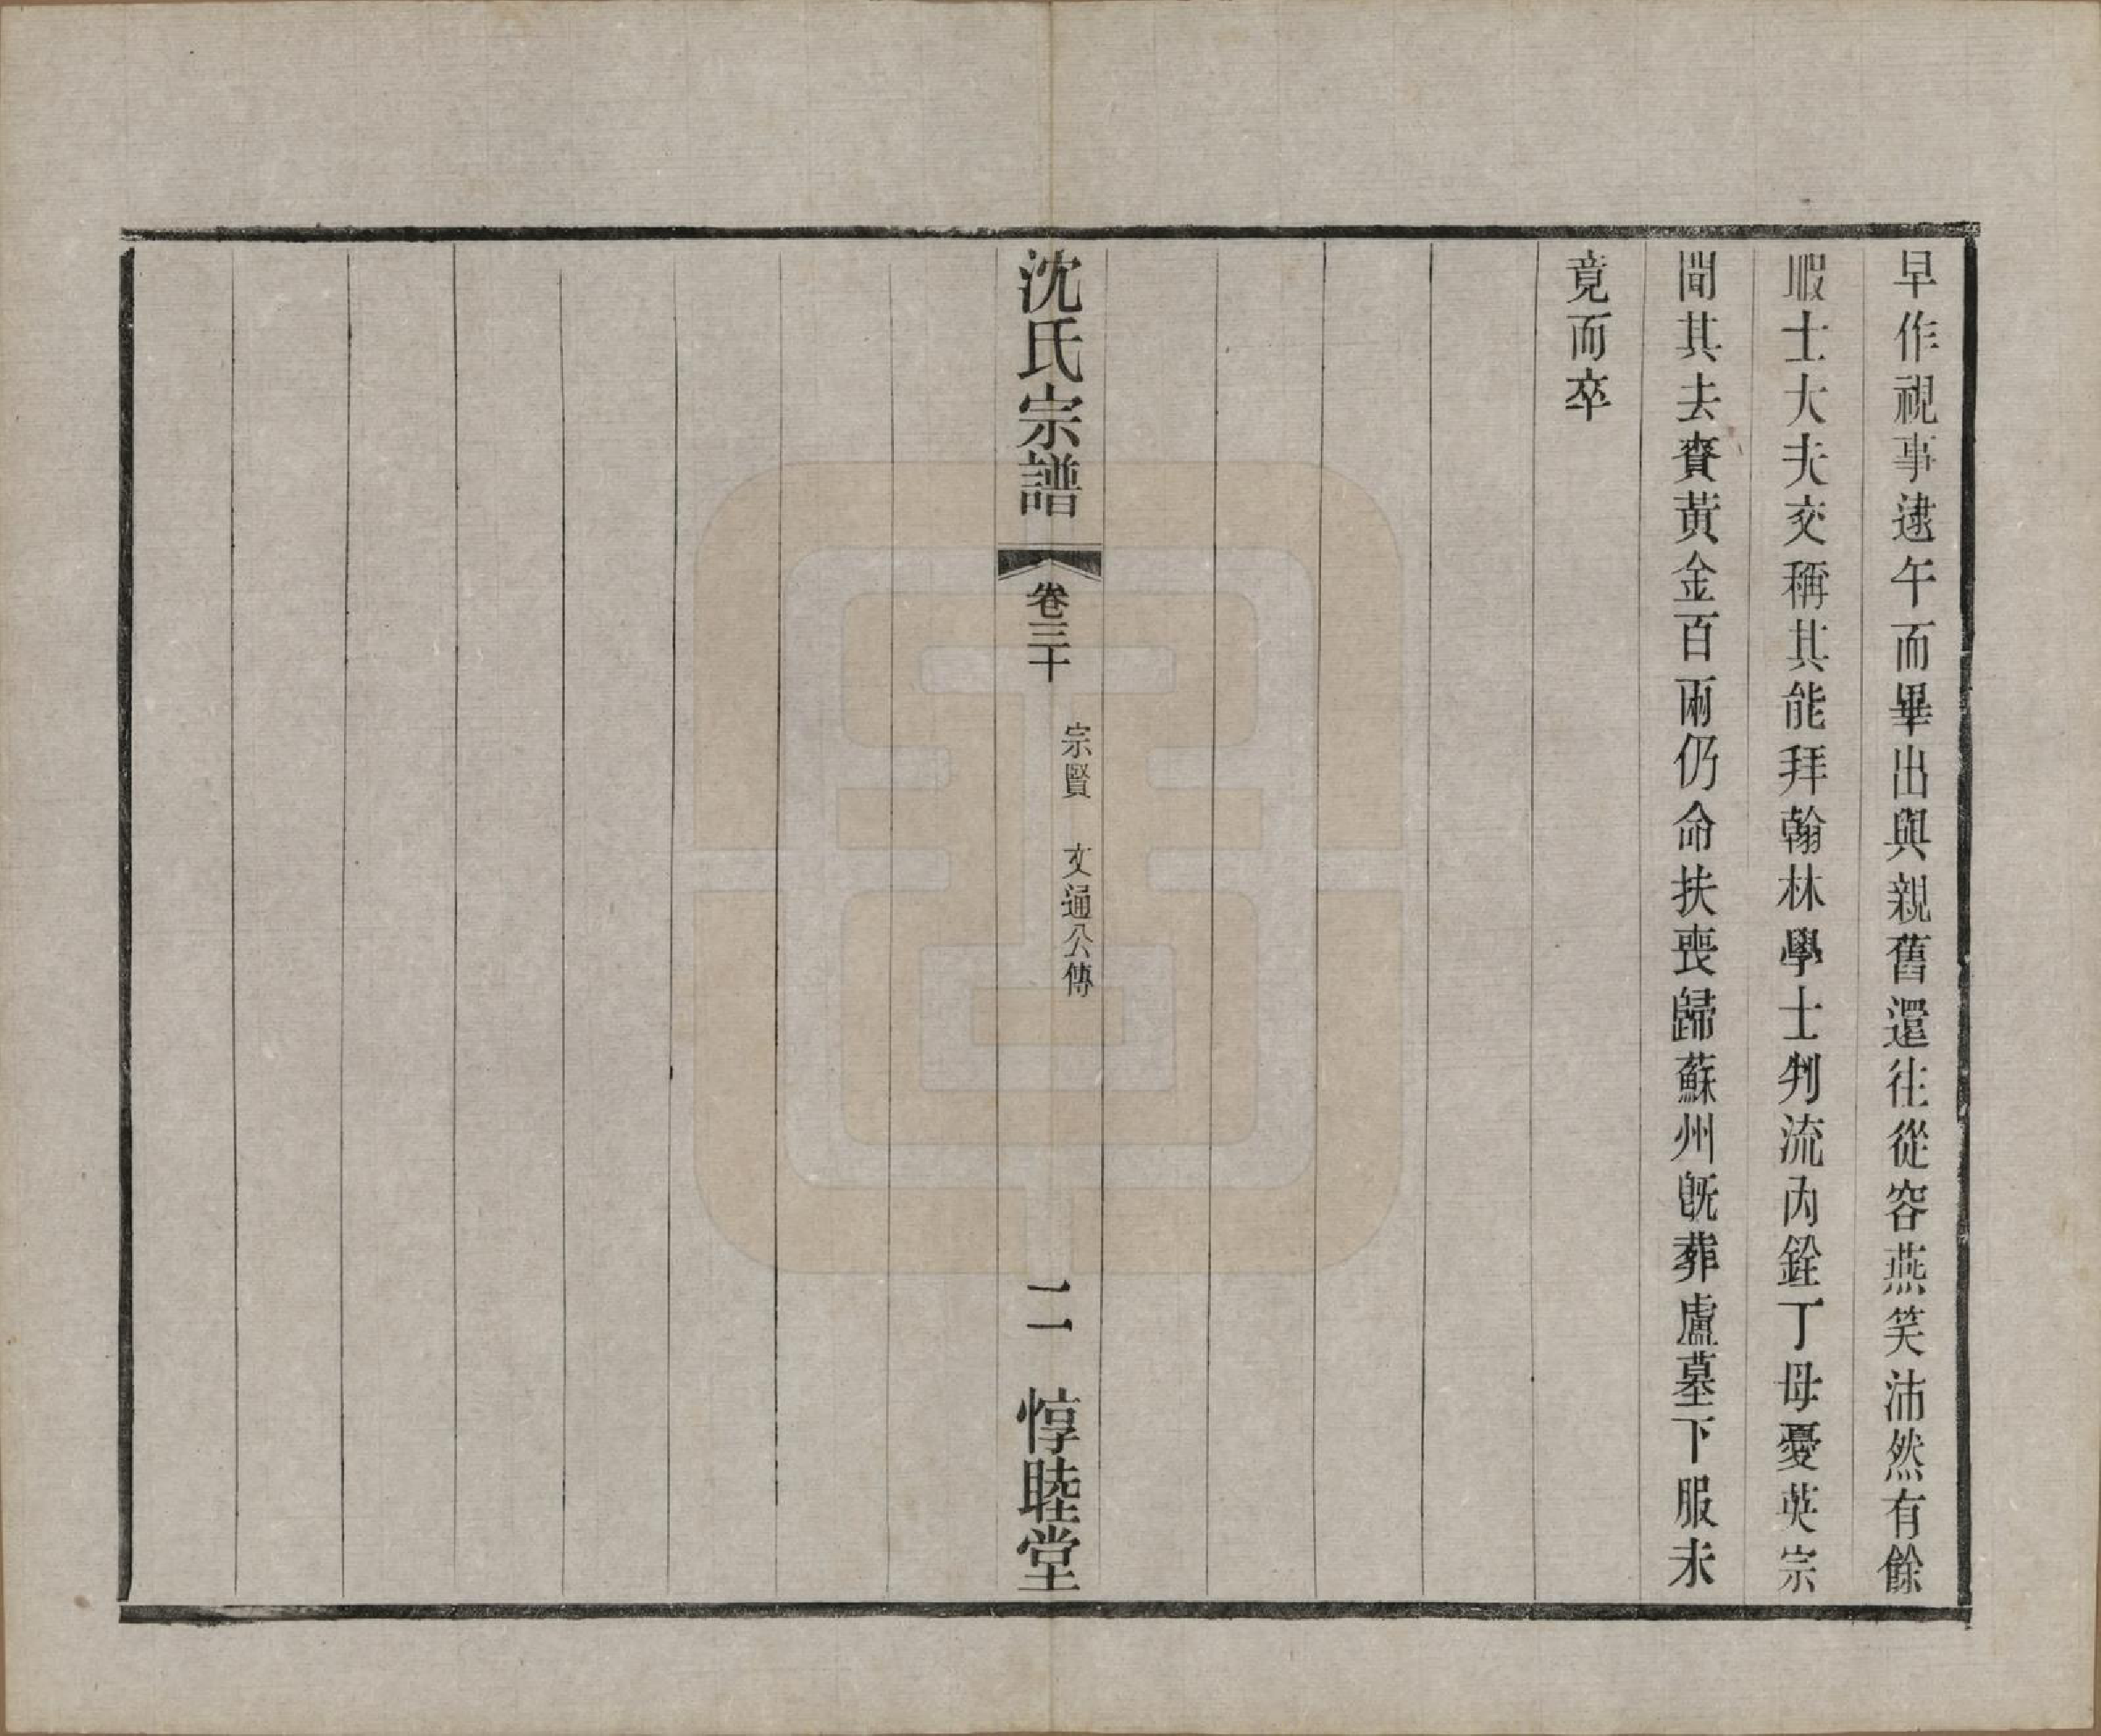 早作視事逮午而畢出與親舊還往從容燕笑沛然有餘
暇士大夫交稱其能拜翰林學士判流內銓丁母憂英宗
聞其去賚黃金百兩仍命扶喪歸蘇州旣葬盧墓下服未
竟而卒
沈氏宗譜
卷三十
宗賢 文通公傳
二
惇睦堂